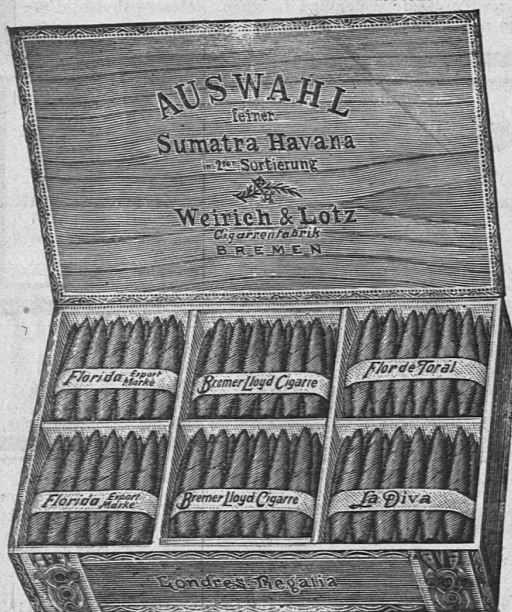 AUSWAHL
feiner
Sumatra Havana
in 2ter Sortierung
Weirich & Lotz
Cigarrenfabrik
BREMEN
Florida Export Marke
Bremer Lloyd Cigarre
Flor de Toral
Florida Export Marke
Bremer Lloyd Cigarre
La Diva
Londres Regalia